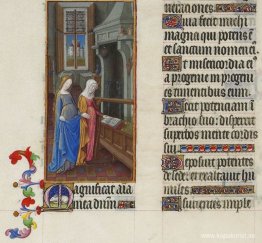 Magnificat aīa
mea dn̄m
nerationes.
Quia fecit michi
magna qui potens e
et sanctum nomen e
Et misericordia ei
a progenie in progeni
timentibus eum.
Fecit potenciam in
brachio suo: dispersit
superbos mente cordis
sui
Deposuit potentes de
sede: et exaltauit hu
miles
Esurientes imple
www.kopiakonst.se